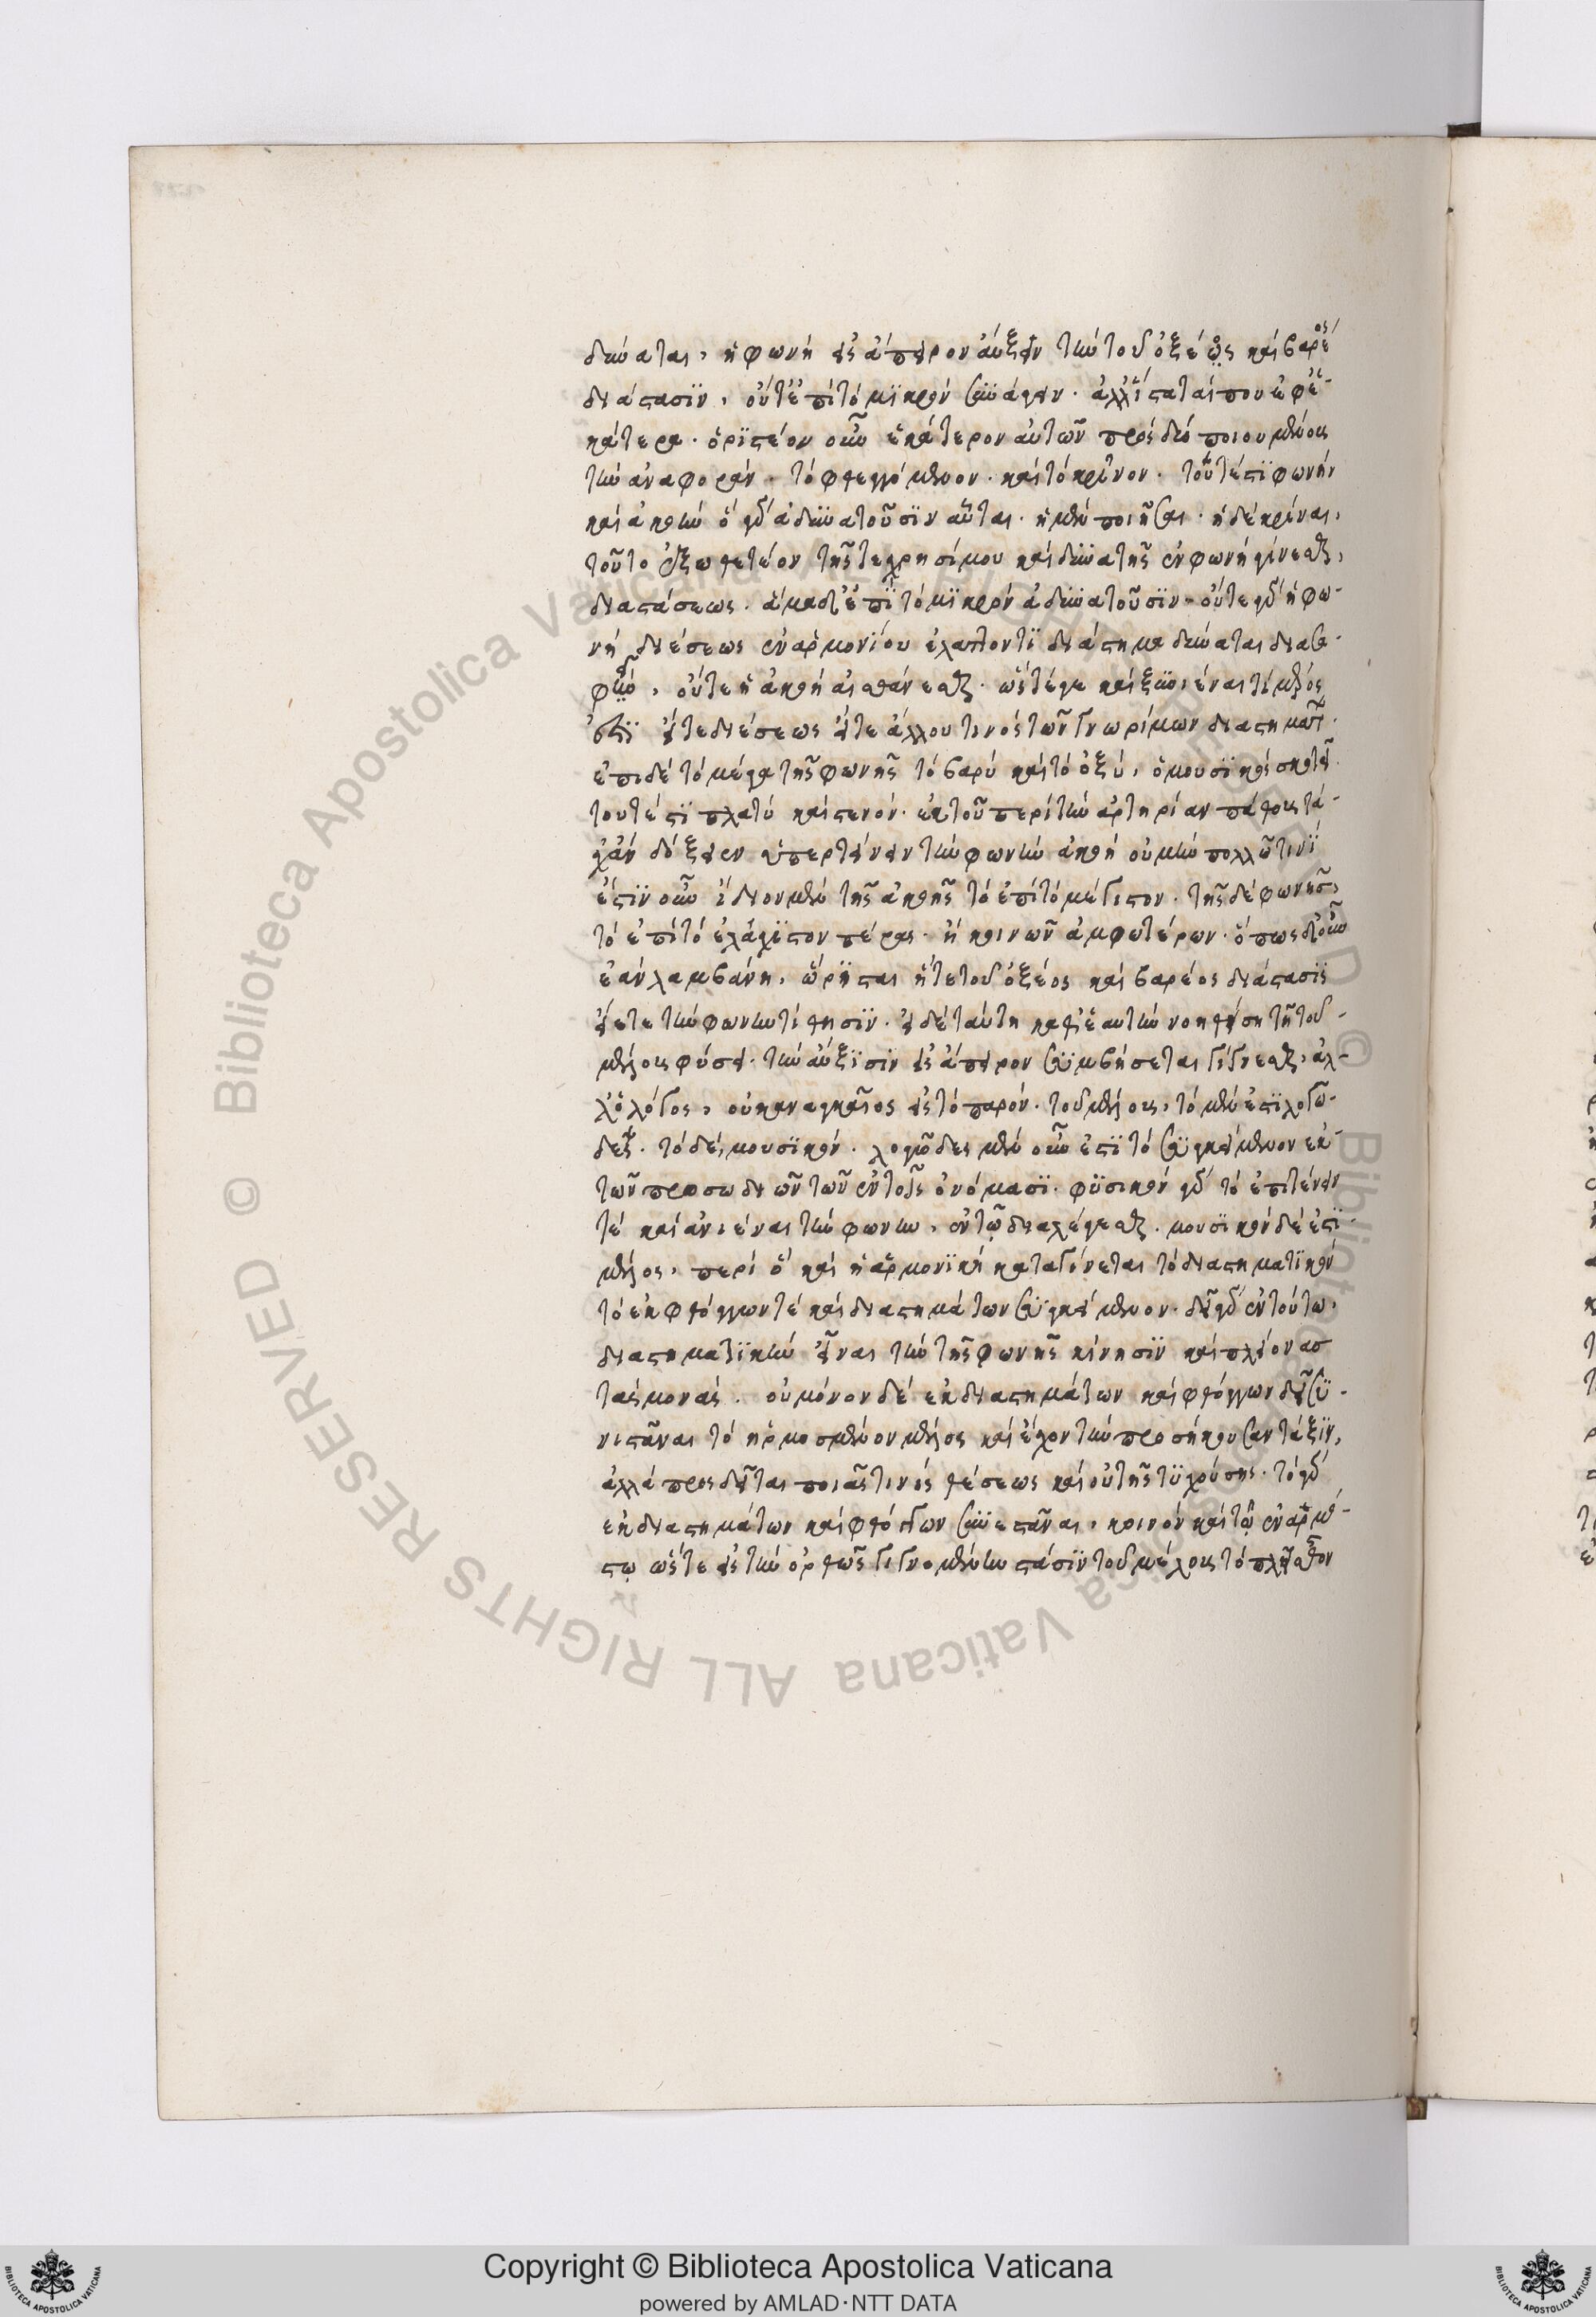 δύναται, ἡ φωνὴ εἰς ἄπειρον αὔξειν τὴν τοῦ ὀξέως καὶ βαρέος
διάστασϊν, οὔτ' ἐπὶ τὸ μϊκρὸν συνάγειν. ἀλλ' ἵσταταί που ἐφ' ἑ-
κάτερα. ὁρϊστέον οὖν ἑκάτερον αὐτῶν πρὸς δύο ποιουμένους
τὴν ἀναφοράν. τὸ φθεγγόμενον. καὶ τὸ κρῖνον. τοῦτέστϊ φωνὴν
καὶ ἀκοὴν ὃ γὰρ ἀδυνατοῦσϊν αὗται. ἡ μὲν ποιῆσαι. ἡ δὲ κρίναι,
τοῦτο ἔξω θετέον τῆς τε χρησίμου καὶ δυνατῆς ἐν φωνῇ γίνεσθαι,
διαστάσεως. ἅμα δ' ἐπὶ τὸ μϊκρὸν ἀδυνατοῦσϊν. οὔτε γὰρ ἡ φω-
νὴ διέσεως ἐναρμονίου ἔλαττόν τϊ διάστημα δύναται διασα-
φεῖν, οὔτε ἡ ἀκοὴ αἰσθάνεσθαι. ὥστέ γε καὶ ξυνιέναι τί μέρος
ἐστῒ εἴτε διέσεως εἴτε ἄλλου τινὸς τῶν γνωρίμων διαστημάτων.
ἐπὶ δὲ τὸ μέγα τῆς φωνῆς τὸ βαρὺ καὶ τὸ ὀξύ, ὁ μουσϊκὸς σκοπεῖ.
τουτέστϊ πλατὺ καὶ στενόν. ἐκ τοῦ περὶ τὴν ἀρτηρίαν πάθους τά-
χ' ἂν δόξειεν ὑπερτείνειν τὴν φωνὴν ἀκοή οὐ μὴν πολλῷ τινΐ
ἐστϊν οὖν ἴδιον μὲν τῆς ἀκοῆς τὸ ἐπὶ τὸ μέγιστον. τῆς δὲ φωνῆς,
τὸ ἐπὶ τὸ ἐλάχϊστον πέρας. ἢ κοινῶν ἀμφοτέρων. ὅπως δ' οὖν
ἐὰν λαμβάνῃ, ὥρϊσται ἥ τε τοῦ ὀξέος καὶ βαρέος διάστασϊς
εἴτε τὴν φωνὴν τίθησϊν. εἰ δὲ ταύτη καθ' ἑαυτὴν νοηθείση τῇ τοῦ
μέλους φύσει. τὴν αὔξϊσϊν εἰς ἄπειρον συμβήσεται γίγνεσθαι, ἀλ-
λ' ὁ λόγος, οὐκ ἀναγκαῖος εἰς τὸ παρόν. τοῦ μέλους, τὸ μέν ἐστϊ λογῶ-
δες. τὸ δέ, μουσϊκόν. λογῶδες μὲν οὖν ἐστϊ τὸ συγκείμενον ἐκ
τῶν προσωδιῶν τῶν ἐν τοῖς ὀνόμασϊ. φϋσικὸν γὰρ τὸ ἐπιτείνειν
τὲ καὶ ἀνιέναι τὴν φωνήν, ἐν τῷ διαλέγεσθαι. μουσϊκὸν δέ ἐστϊ
μέλος, περὶ ὃ καὶ ἡ ἁρμονϊκὴ καταγίνεται τὸ διαστηματϊκὸν
τὸ ἐκ φθόγγων τὲ καὶ διαστημάτων συγκείμενον. δεῖ γὰρ ἐν τούτω,
διαστηματϊκὴν εἶναι τὴν τῆς φωνῆς κίνησϊν καὶ πλείονας
τὰς μονάς. οὐ μόνον δὲ ἐκ διαστημάτων καὶ φθόγγων δεῖ συ-
νιστᾶναι τὸ ἡρμοσμένον μέλος καὶ ἔχον τὴν προσήκουσαν τάξϊν,
ἀλλὰ προσδεῖται ποιᾶς τινὸς θέσεως καὶ οὐ τῆς τϋχούσης. τὸ γὰρ
ἐκ διαστημάτων καὶ φθόγγων συνεστᾶναι, κοινὸν καὶ τῷ ἐναρμό-
στῳ ὥστε εἰς τὴν ὀρθῶς γιγνομένην στάσϊν τοῦ μέλους τὸ πλεῖστον